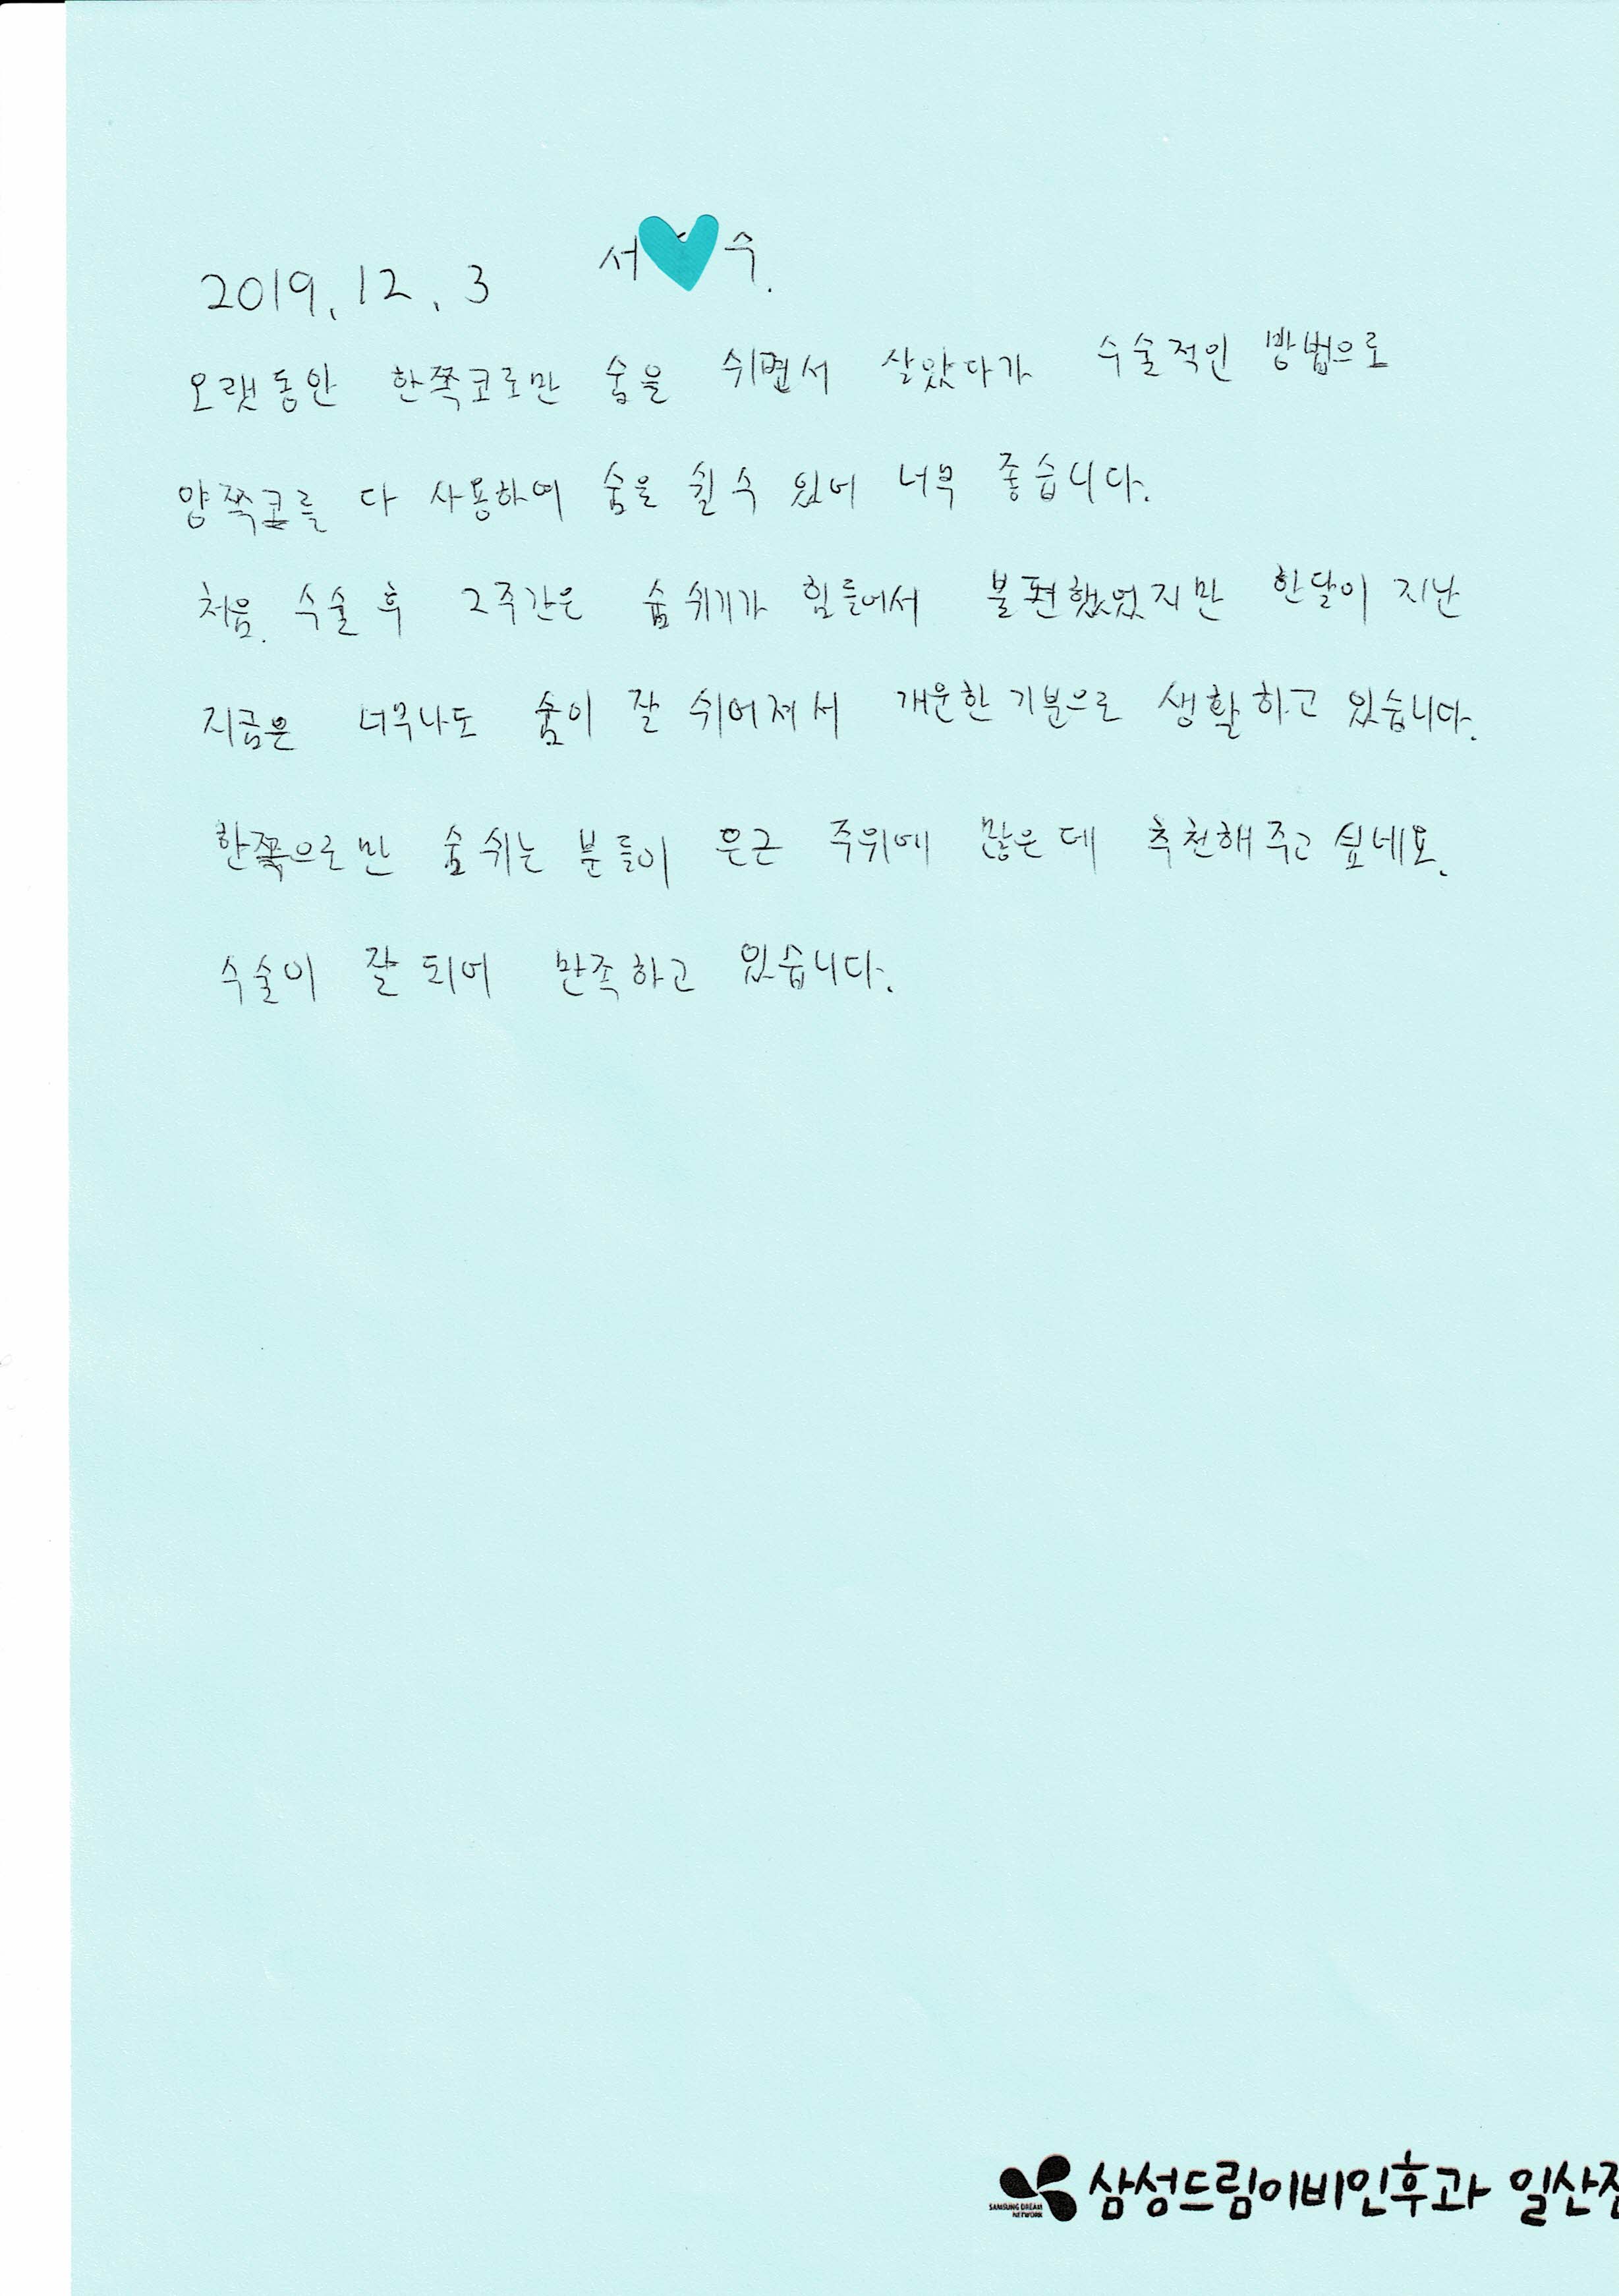 2019. 12. 3 서 수.
오랫동안 한쪽코로만 숨을 쉬면서 살았다가 수술적인 방법으로
양쪽코를 다 사용하여 숨을 쉴수 있어 너무 좋습니다.
처음. 수술 후 2주간은 숨쉬기가 힘들어서 불편했었지만 한달이 지난
지금은 너무나도 숨이 잘 쉬어져서 개운한 기분으로 생활하고 있습니다.
한쪽으로만 숨쉬는 분들이 은근 주위에 많은데 추천해주고 싶네요.
수술이 잘 되어 만족하고 있습니다.
SAMSUNG DREAM
NETWORK
삼성드림이비인후과 일산점